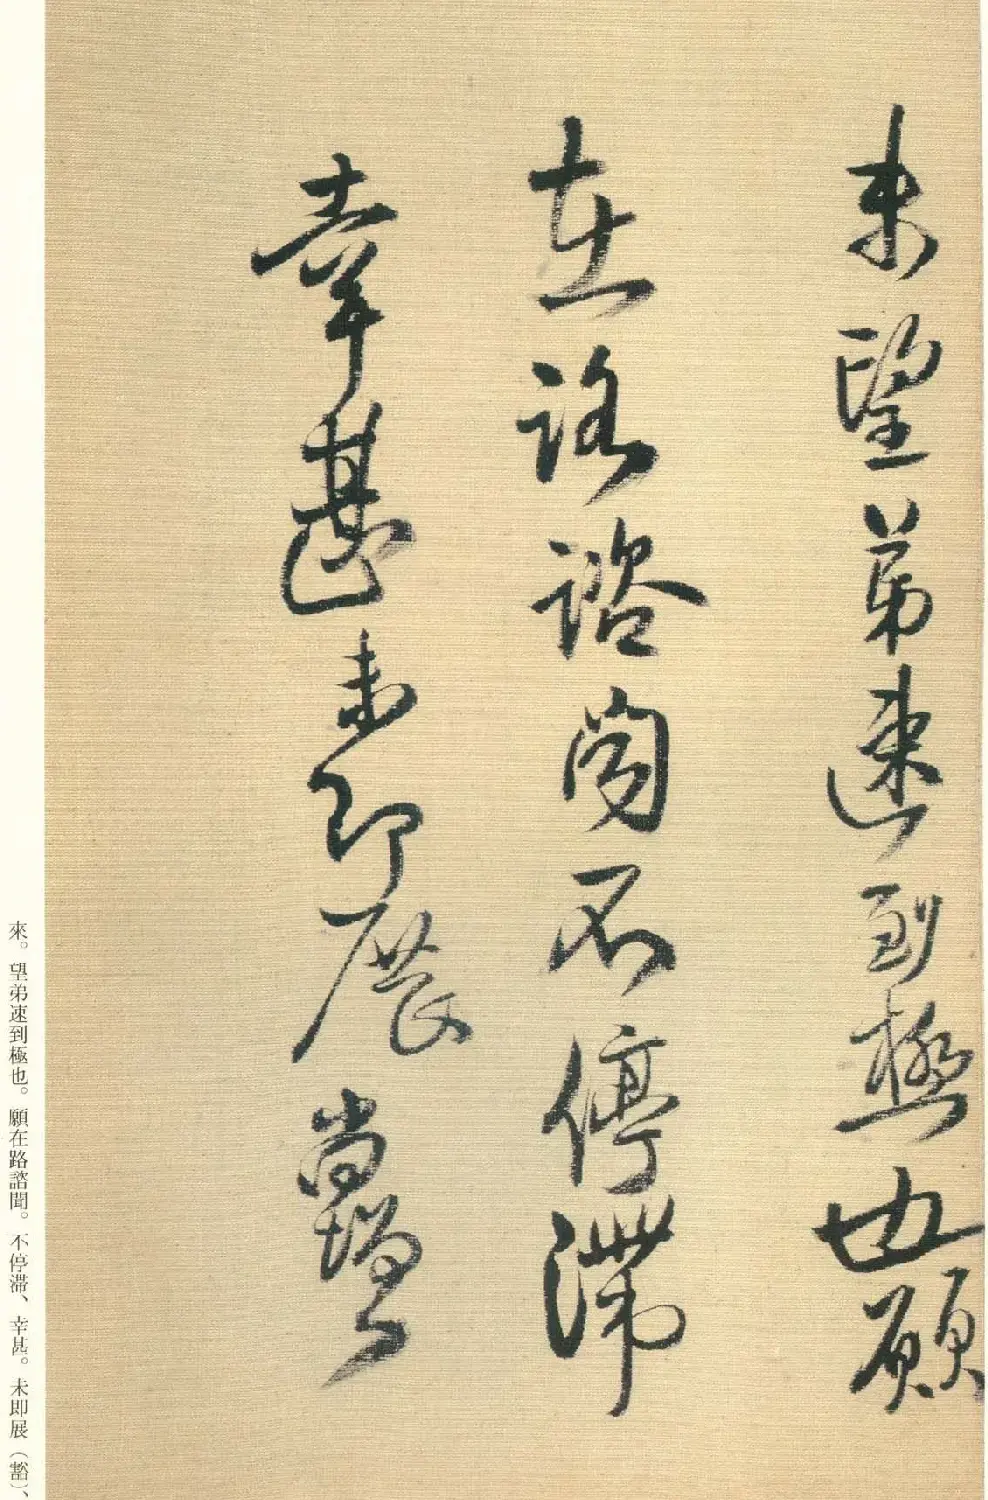 來望弟速到極也願
在路諮聞不停滯
幸甚未即展尚增
來。望弟速到極也。願在路諮聞。不停滯、幸甚。未即展（豁）、